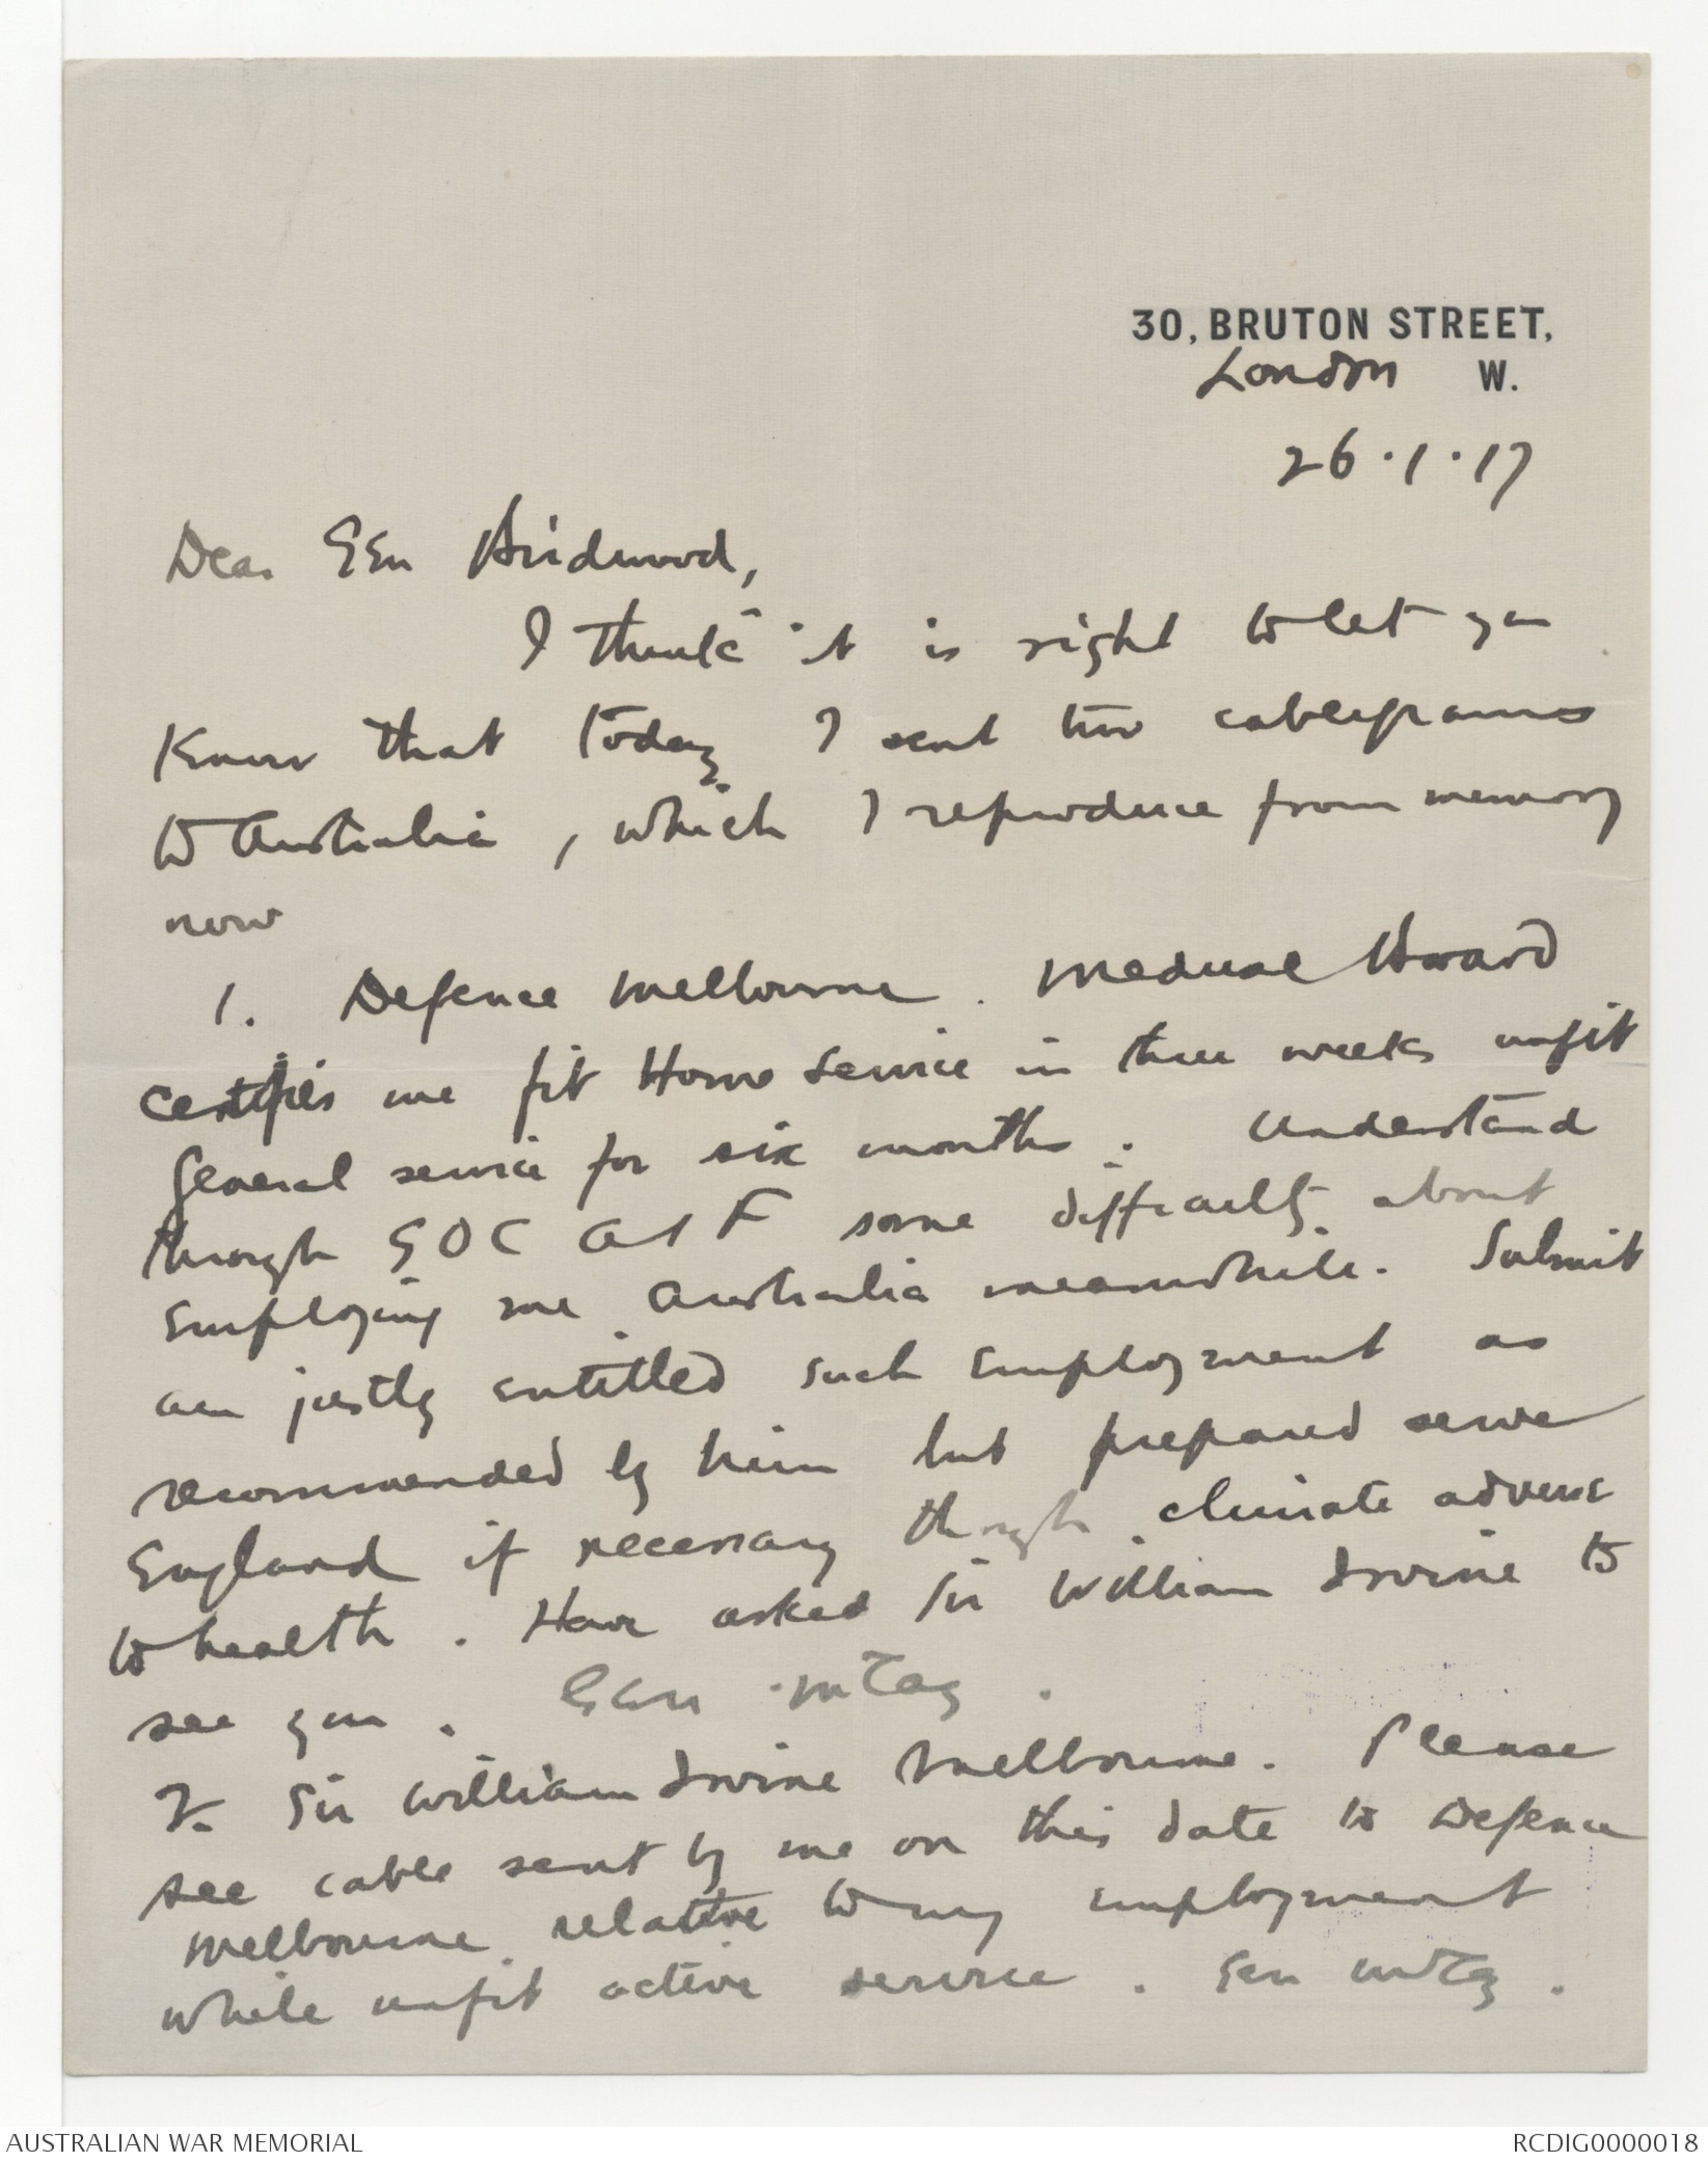 30, BRUTON STREET,
London W.
26.1.17
Dear Gen Birdwood,
I think it is right to let you
know that today I sent two cablegrams
to Australia, which I reproduce from memory
now
1. Defence Melbourne. Medical Board
certifies me fit Home Service in three weeks unfit
General service for six months. Understand
through GOC AIF some difficulty about
employing me Australia meanwhile. Submit
am justly entitled such employment as
recommended by him but prepared serve
England if necessary though climate adverse
to health. Have asked Sir William Irvine to
see you. Gen McCay.
2. Sir William Irvine Melbourne. Please
see cable sent by me on this date to Defence
Melbourne relative to my employment
while unfit active service. Gen McCay.
AUSTRALIAN WAR MEMORIAL
RCDIG0000018